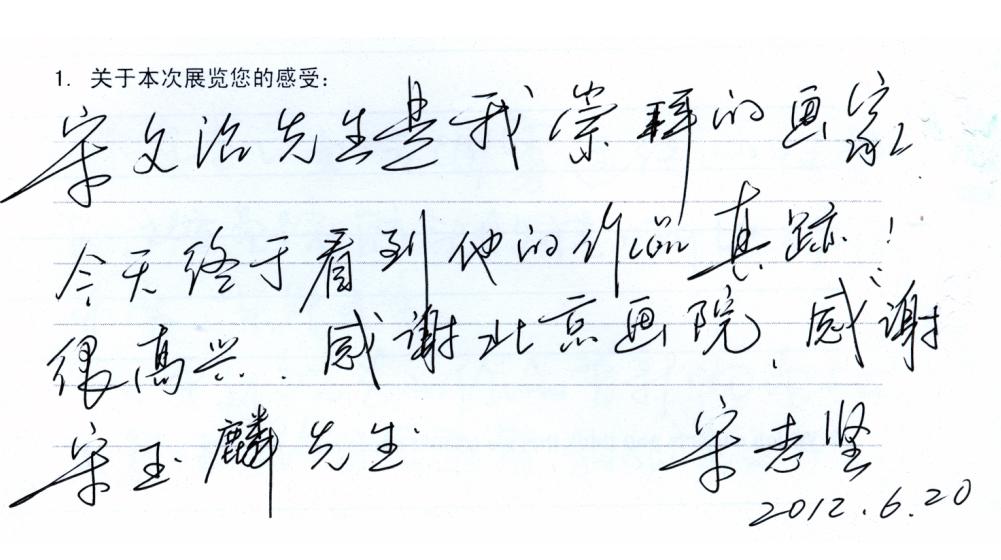 1. 关于本次展览您的感受:
宋文治先生是我崇拜的画家
今天终于看到他的作品真跡!
很高兴.感谢北京画院,感谢
宋玉麟先生 宋志坚
2012.6.20